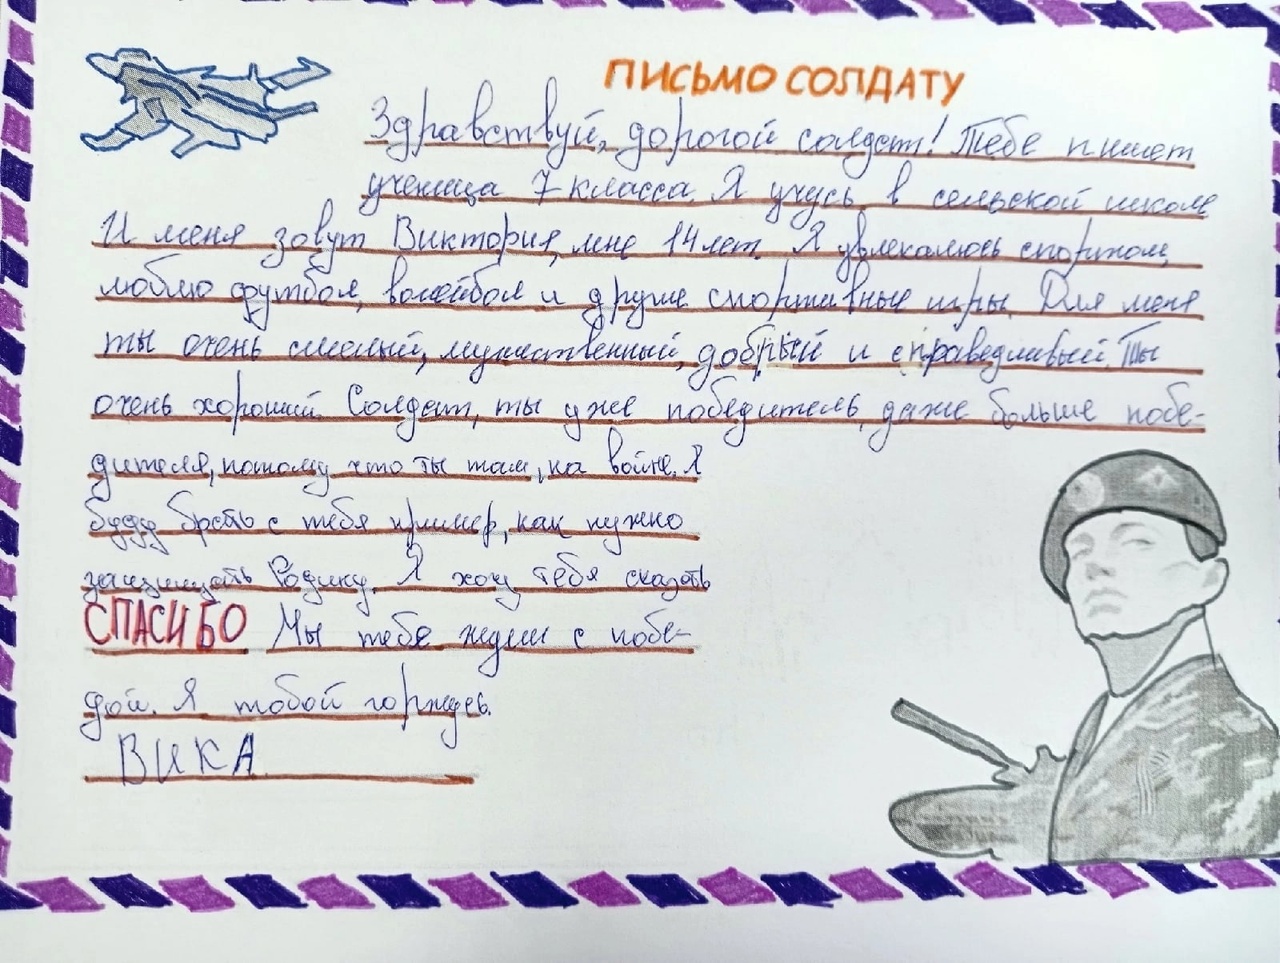 ПИСЬМО СОЛДАТУ
Здравствуй, дорогой солдат! Тебе пишет
ученица 7 класса. Я учусь в сельской школе
И меня зовут Виктория, мне 14 лет. Я увлекаюсь спортом,
люблю футбол, волейбол и другие спортивные игры. Для меня
ты очень смелый, мужественный, добрый и справедливый. Ты
очень хороший Солдат, ты уже победитель, даже больше побе-
дителя, потому что ты там, на войне. Я
буду брать с тебя пример, как нужно
защищать Родину. Я хочу тебя сказать
СПАСИБО Мы тебя ждем с побе-
дой. Я тобой горжусь.
ВИКА